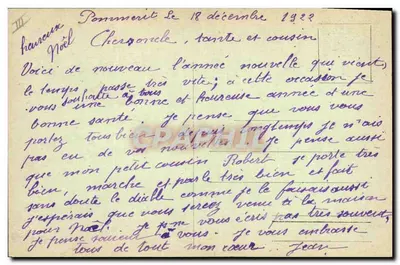 III
heureux Noël
Pommerit le 18 décembre 1922
Cher oncle, tante et cousin
Voici de nouveau l'année nouvelle qui vient,
le temps passe très vite; à cette occasion je
vous souhaite à tous une bonne et heureuse année et une
bonne santé. je pense que vous vous
portez tous bien longtemps je n'ais
pas eu de vos nouvelles je pense aussi
que mon petit cousin Robert se porte très
bien, marche et parle très bien et fait
sans doute le diable comme je le faisais aussi
j'espérais que vous seriez venu à la maison
pour Noël. je ne vous écris pas très souvent,
je pense souvent à vous. je vous embrasse
tous de tout mon cœur Jean